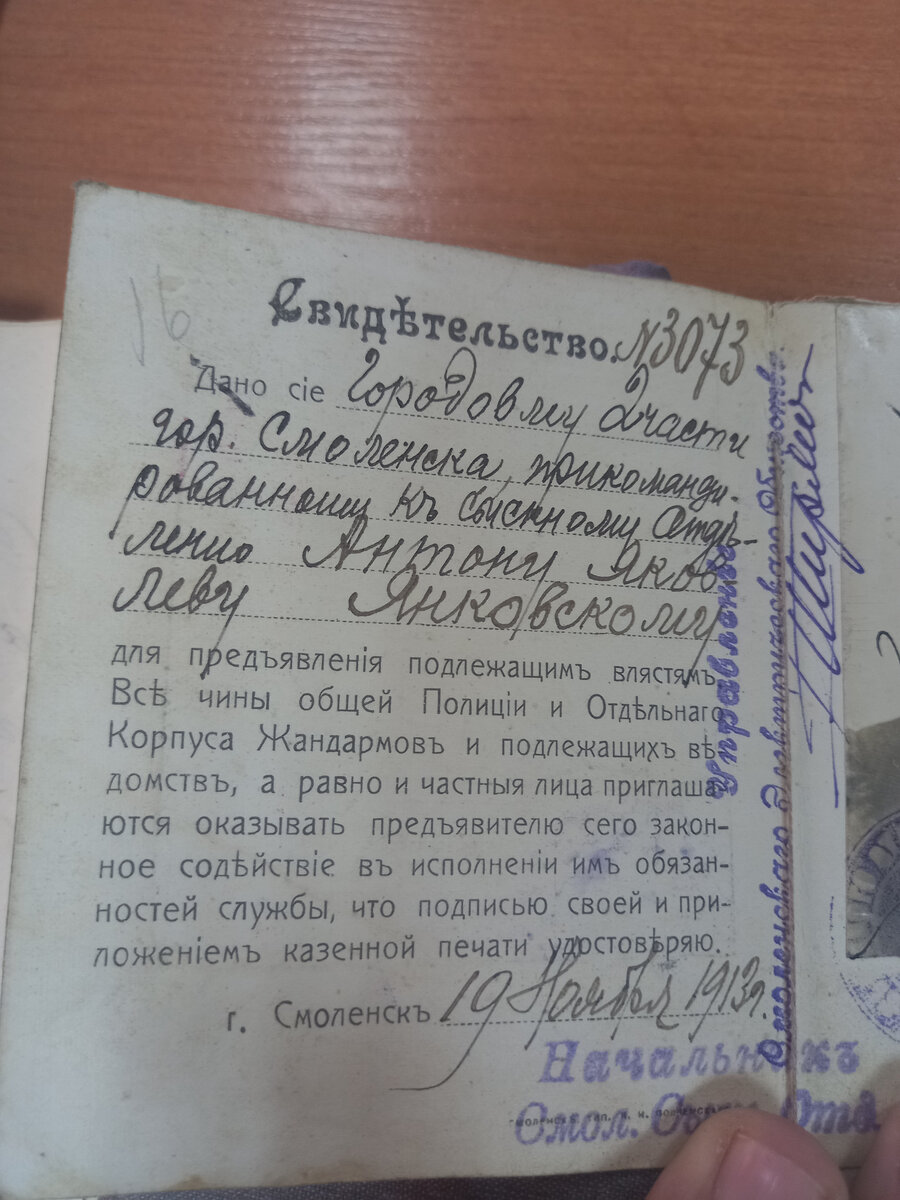 16
Свидѣтельство. № 3073
Дано сіе Городовому 2 части
гор. Смоленска, прикоманди-
рованному къ Сыскному Отдѣ-
ленію Антону Яков
леву Янковскому
для предъявленія подлежащимъ влястямъ.
Всѣ чины общей Полиціи и Отдѣльнаго
Корпуса Жандармовъ и подлежащихъ вѣ-
домствъ, а равно и частныя лица приглаша-
ются оказывать предъявителю сего закон-
ное содѣйствіе въ исполненіи имъ обязан-
ностей службы, что подписью своей и при-
ложеніемъ казенной печати удостовѣряю.
г. Смоленскъ 19 Ноября 1913 г.
Начальникъ
Смол. Сыск. Отд
Управленіе
Смоленскаго общества